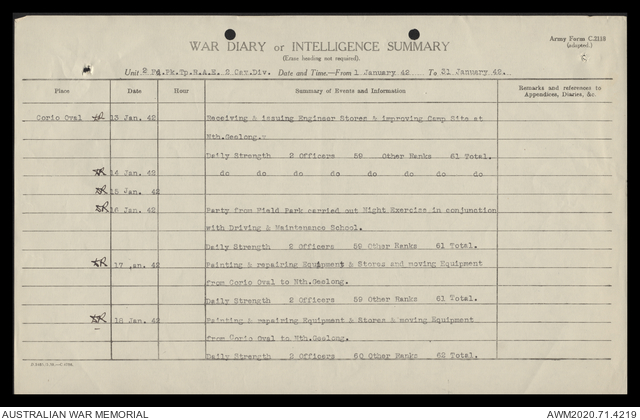 Army Form C.2118
(adapted.)
WAR DIARY or INTELLIGENCE SUMMARY
(Erase heading not required).
Unit. 2 Fd.Pk.Tp.R.A.E. 2 Cav.Div. Date and Time.—From 1 January 42 To 31 January 42.
Place Date Hour Summary of Events and Information Remarks and references to Appendices, Diaries, &c.
Corio Oval 13 Jan. 42 Receiving & issuing Engineer Stores & improving Camp Site at
Nth.Geelong.
Daily Strength 2 Officers 59 Other Ranks 61 Total.
14 Jan. 42 do do do do do do do
15 Jan. 42
16 Jan. 42 Party from Field Park carried out Night Exercise in conjunction
with Driving & Maintenance School.
Daily Strength 2 Officers 59 Other Ranks 61 Total.
17 an. 42 Painting & repairing Equipment & Stores and moving Equipment
from Corio Oval to Nth.Geelong.
Daily Strength 2 Officers 59 Other Ranks 61 Total.
18 Jan. 42 Painting & repairing Equipment & Stores & moving Equipment
from Corio Oval to Nth.Geelong.
Daily Strength 2 Officers 60 Other Ranks 62 Total.
AUSTRALIAN WAR MEMORIAL AWM2020.71.4219